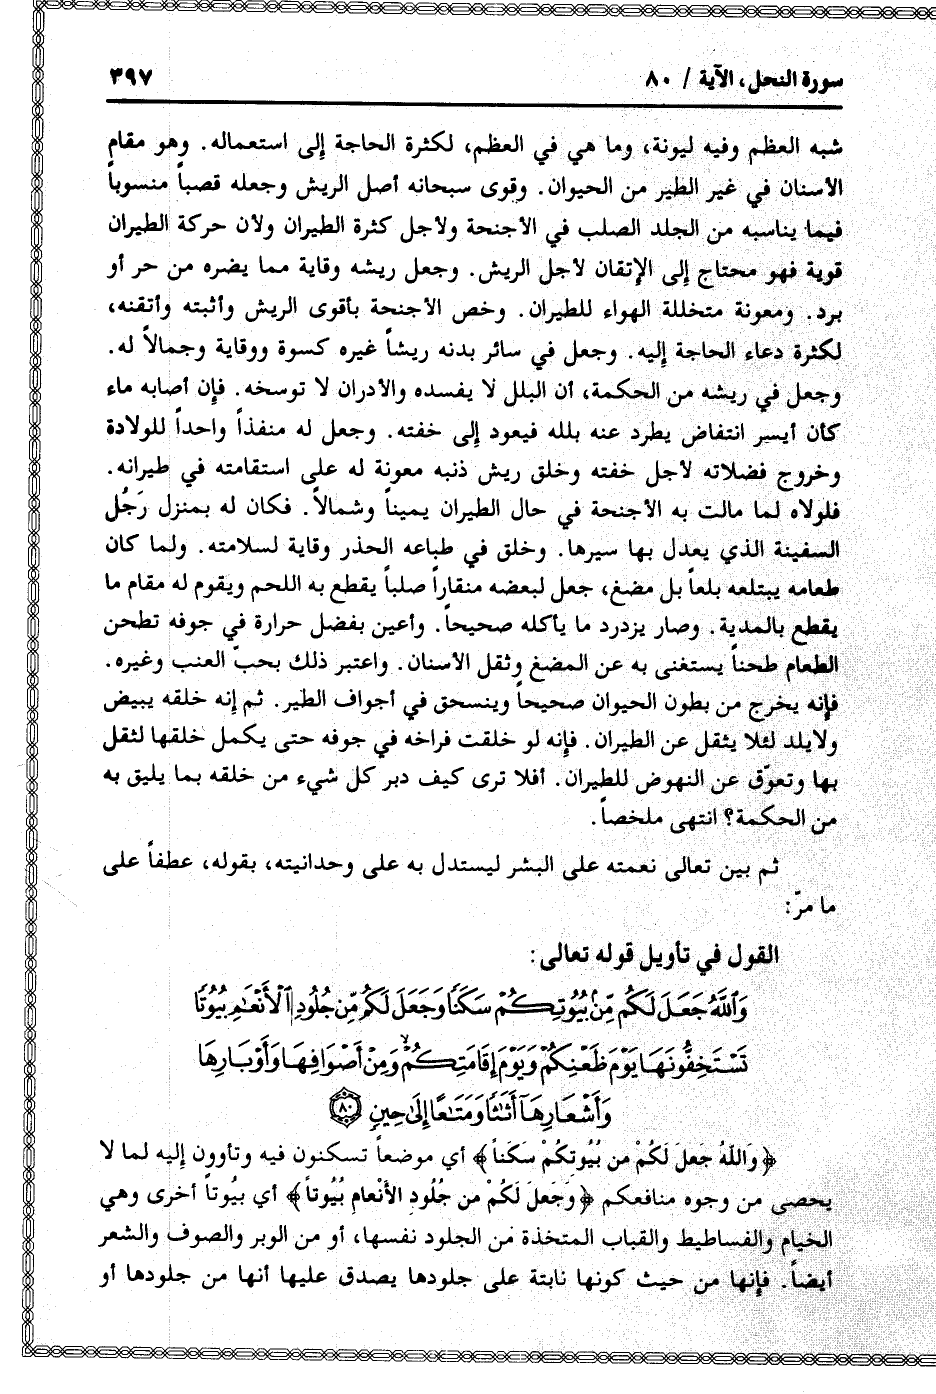 سورة النحل، الآية / ٨٠
٣٩٧
شبه العظم وفيه ليونة، وما هي في العظم، لكثرة الحاجة إلى استعماله. وهو مقام
الأسنان في غير الطير من الحيوان. وقوى سبحانه أصل الريش وجعله قصباً منسوباً
فيما يناسبه من الجلد الصلب في الأجنحة ولأجل كثرة الطيران ولأن حركة الطيران
قوية فهو محتاج إلى الإتقان لأجل الريش. وجعل ريشه وقاية مما يضره من حر أو
برد. ومعونة متخللة الهواء للطيران. وخص الأجنحة بأقوى الريش وأثبته وأتقنه،
لكثرة دعاء الحاجة إليه. وجعل في سائر بدنه ريشاً غيره كسوة ووقاية وجمالاً له.
وجعل في ريشه من الحكمة، أن البلل لا يفسده والأدران لا توسخه. فإن أصابه ماء
كان أيسر انتفاض يطرد عنه بلله فيعود إلى خفته. وجعل له منفذاً واحداً للولادة
وخروج فضلاته لأجل خفته وخلق ريش ذنبه معونة له على استقامته في طيرانه.
فلولاه لما مالت به الأجنحة في حال الطيران يميناً وشمالاً. فكان له بمنزل رَجُل
السفينة الذي يعدل بها سيرها. وخلق في طباعه الحذر وقاية لسلامته. ولما كان
طعامه يبتلعه بلعاً بل مضغ، جعل لبعضه منقاراً صلباً يقطع به اللحم ويقوم له مقام ما
يقطع بالمدية. وصار يزدرد ما يأكله صحيحاً. وأعين بفضل حرارة في جوفه تطحن
الطعام طحناً يستغنى به عن المضغ وثقل الأسنان. واعتبر ذلك بحبّ العنب وغيره.
فإنه يخرج من بطون الحيوان صحيحاً وينسحق في أجواف الطير. ثم إنه خلقه يبيض
ولايلد لئلا يثقل عن الطيران. فإنه لو خلقت فراخه في جوفه حتى يكمل خلقها لثقل
بها وتعوّق عن النهوض للطيران. أفلا ترى كيف دبر كل شيء من خلقه بما يليق به
من الحكمة؟ انتهى ملخصاً.
ثم بين تعالى نعمته على البشر ليستدل به على وحدانيته، بقوله، عطفاً على
ما مرّ:
القول في تأويل قوله تعالى:
وَٱللَّهُ جَعَلَ لَكُم مِّنۢ بُيُوتِكُمْ سَكَنًا وَجَعَلَ لَكُم مِّن جُلُودِ ٱلْأَنْعَٰمِ بُيُوتًا
تَسْتَخِفُّونَهَا يَوْمَ ظَعْنِكُمْ وَيَوْمَ إِقَامَتِكُمْ ۙ وَمِنْ أَصْوَافِهَا وَأَوْبَارِهَا
وَأَشْعَارِهَآ أَثَٰثًا وَمَتَٰعًا إِلَىٰ حِينٍ ٨٠
﴿وَاللهُ جَعلَ لَكُمْ من بُيُوتكُمْ سَكَناً﴾ أي موضعاً تسكنون فيه وتأوون إليه لما لا
يحصى من وجوه منافعكم ﴿وَجَعَلَ لَكُمْ من جُلُودِ الأَنْعام بُيُوتاً﴾ أي بيُوتاً أخرى وهي
الخيام والفساطيط والقباب المتخذة من الجلود نفسها، أو من الوبر والصوف والشعر
أيضاً. فإنها من حيث كونها نابتة على جلودها يصدق عليها أنها من جلودها أو